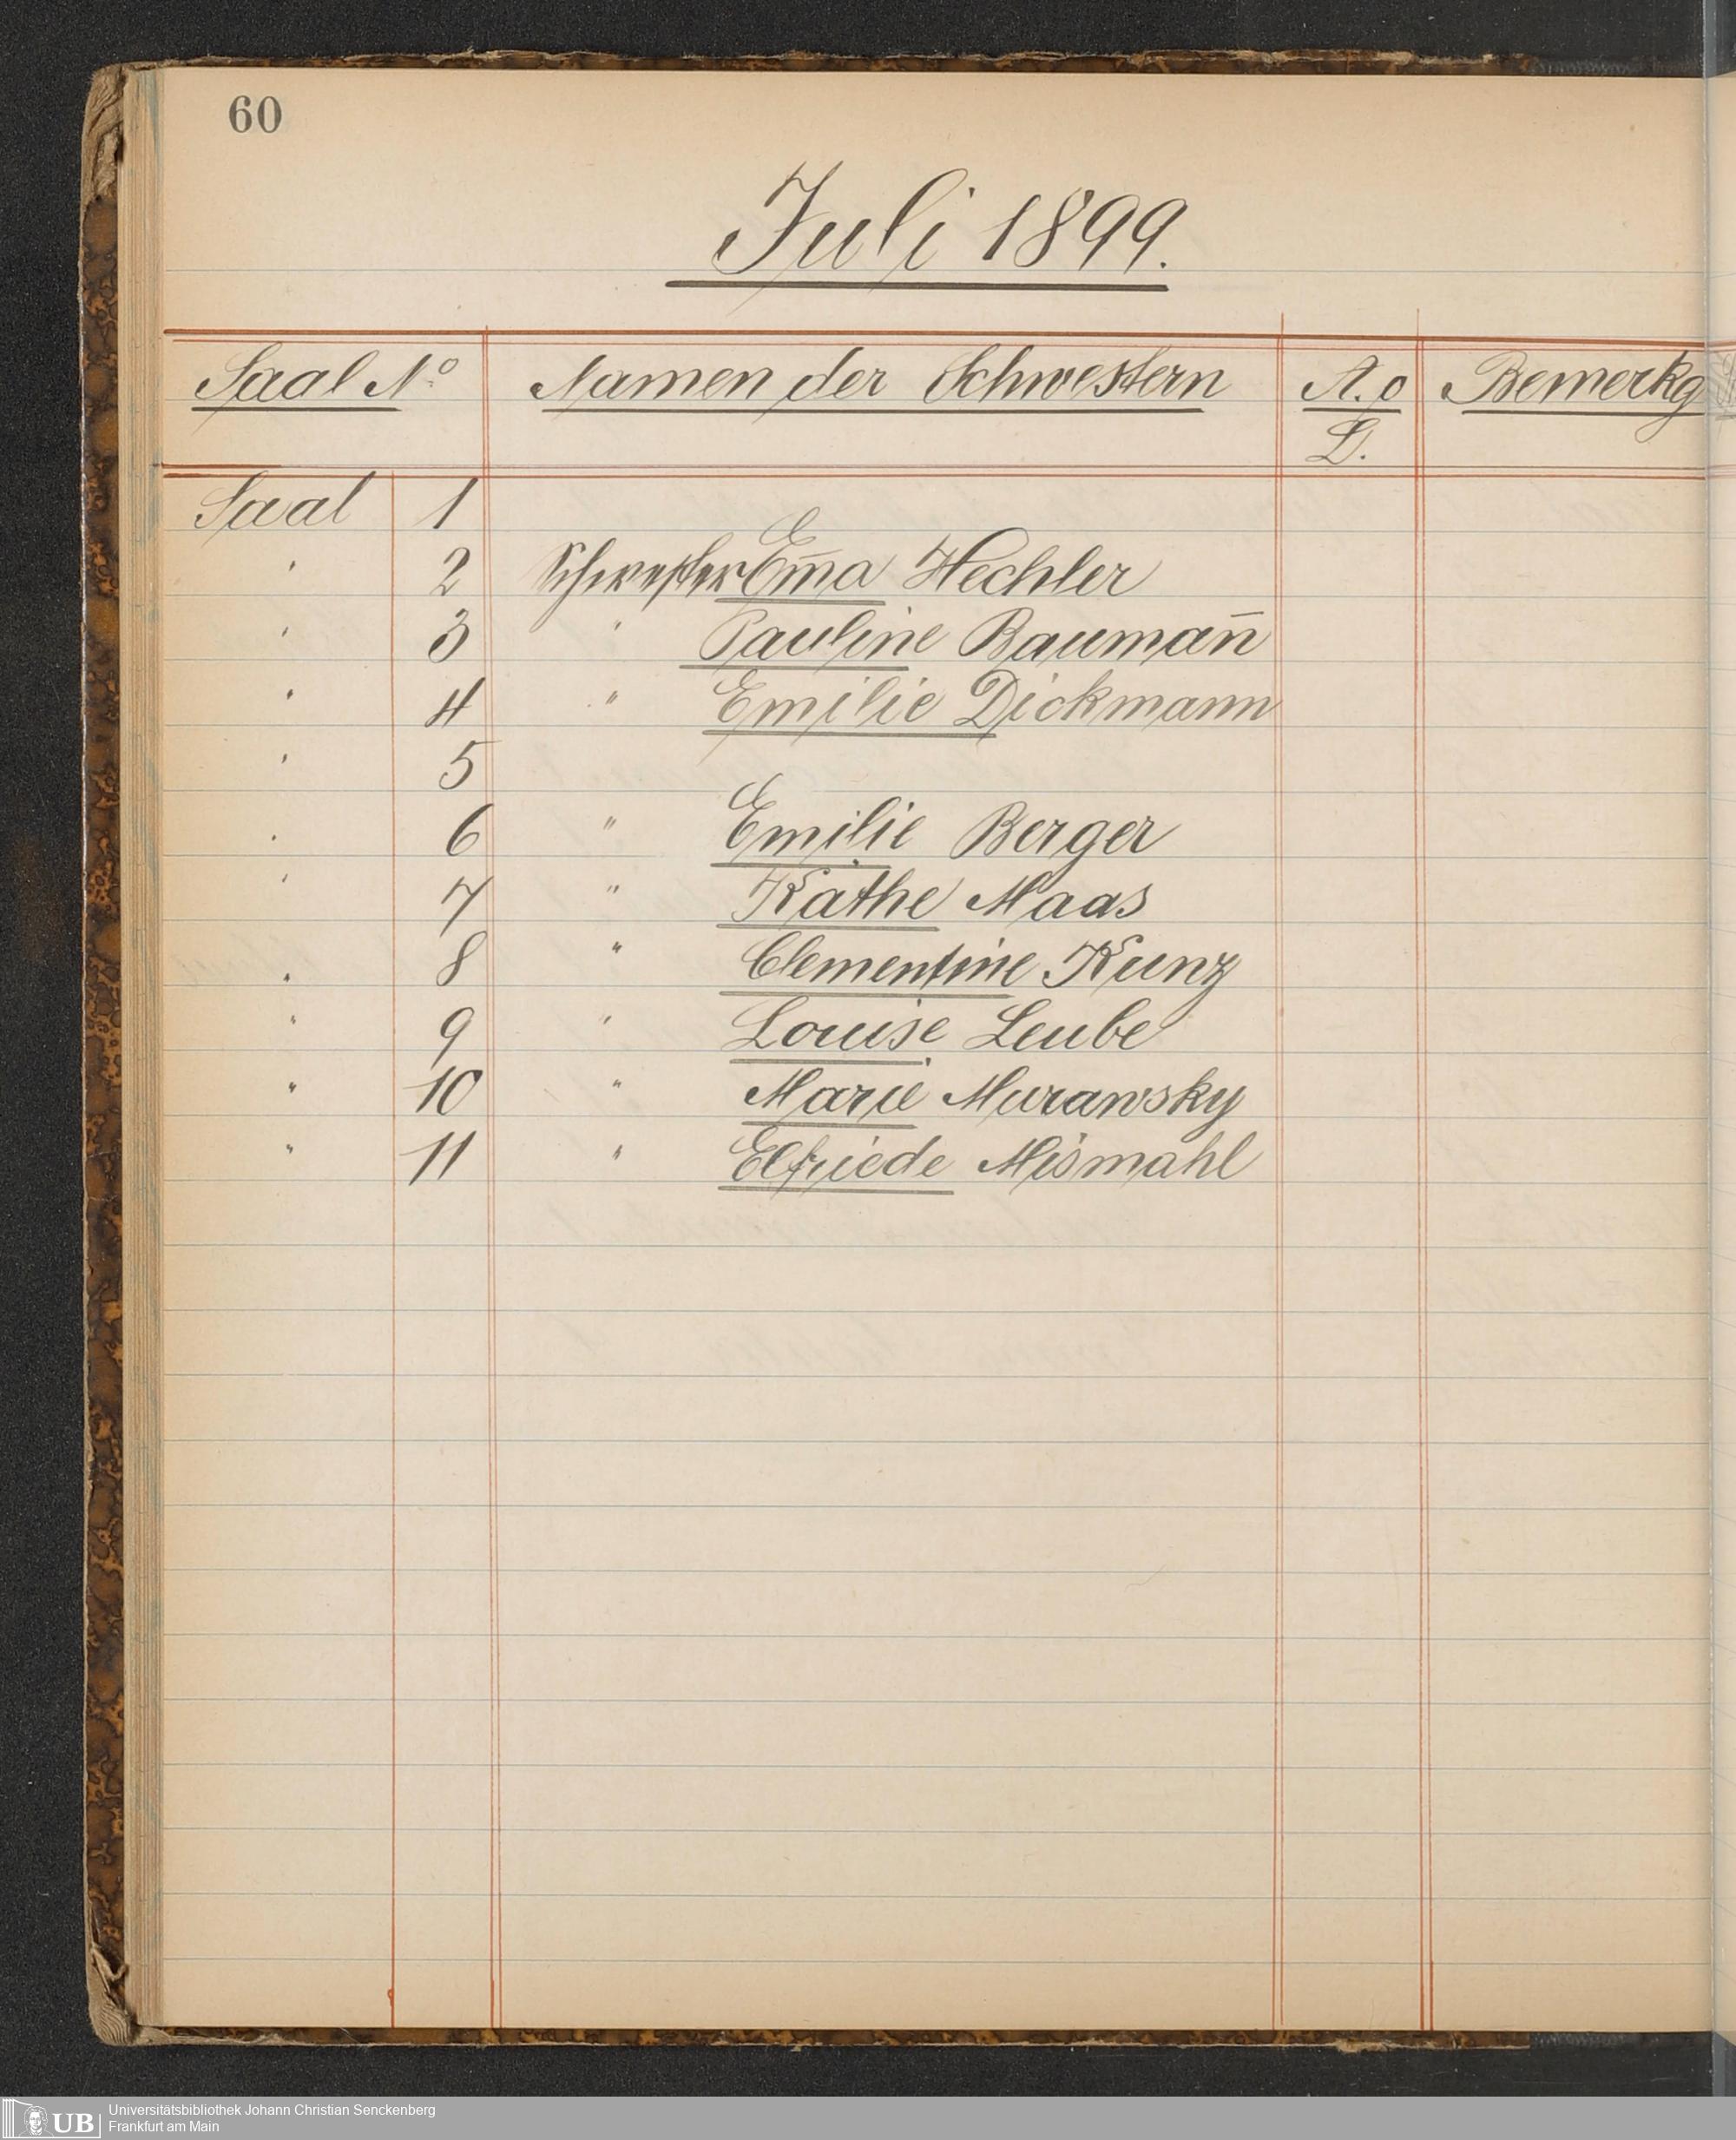 60
Juli 1899.
Saal No Namen der Schwestern A. o D. Bemerkg
Saal 1
" 2 Schwester Em̄a Hechler
" 3 " Pauline Bauman̄
" 4 " Emilie Dickmann
" 5
" 6 " Emilie Berger
" 7 " Käthe Maas
" 8 " Clementine Kunz
" 9 " Louise Leube
" 10 " Marie Murawsky
" 11 " Elfriede Mismahl
UB Universitätsbibliothek Johann Christian Senckenberg
Frankfurt am Main